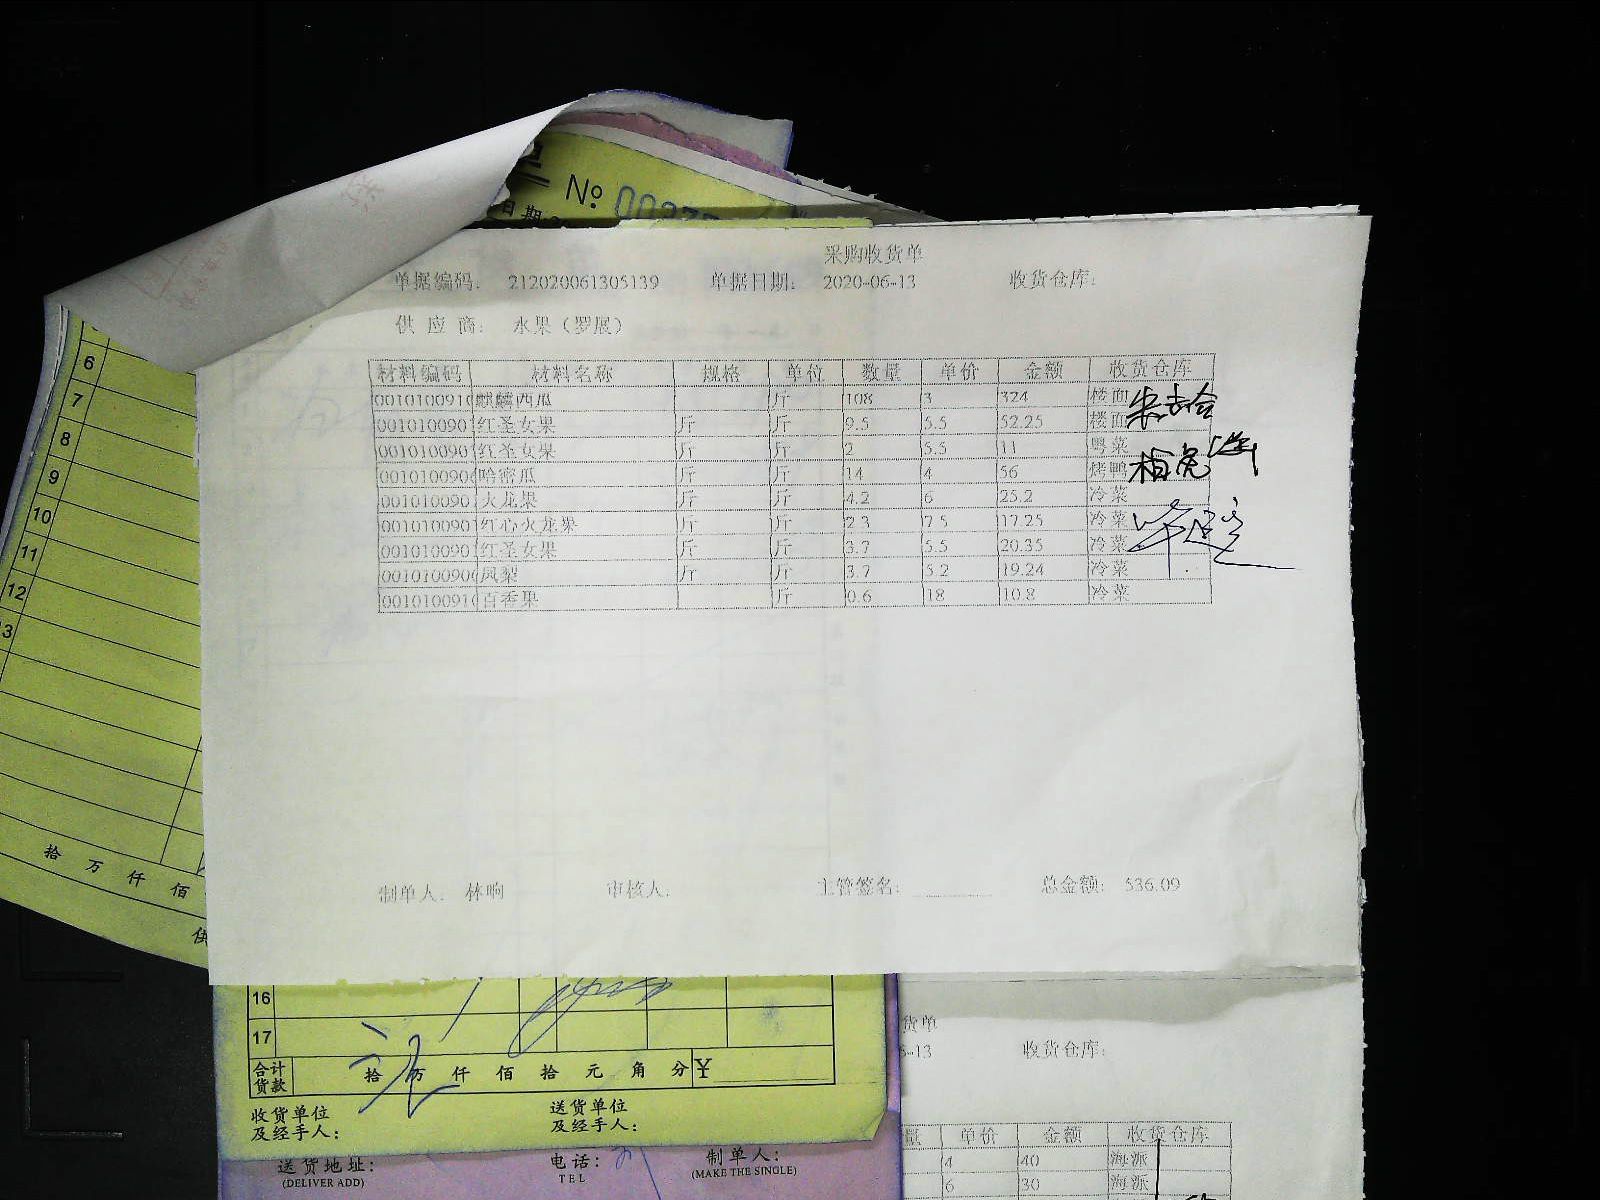 № 00377
日期
采购收货单
单据编码: 212020061305139 单据日期: 2020-06-13 收货仓库:
供 应 商: 水果(罗展)
材料编码 材料名称 规格 单位 数量 单价 金额 收货仓库
0010100910 麒麟西瓜 斤 108 3 324 楼面
001010090 红圣女果 斤 斤 9.5 5.5 52.25 楼面
001010090 红圣女果 斤 斤 2 5.5 11 粤菜
001010090 哈密瓜 斤 斤 14 4 56 烤鸭
001010090 火龙果 斤 斤 4.2 6 25.2 冷菜
001010090 红心火龙果 斤 斤 2.3 7.5 17.25 冷菜
001010090 红圣女果 斤 斤 3.7 5.5 20.35 冷菜
001010090 凤梨 斤 斤 3.7 5.2 19.24 冷菜
001010091 百香果 斤 0.6 18 10.8 冷菜
制单人: 林响 审核人: 主管签名: 总金额: 536.09
6
7
8
9
10
11
12
3
拾 万 仟 佰
供
16
17
合计货款 拾 万 仟 佰 拾 元 角 分 ¥
收货单位 送货单位
及经手人: 及经手人:
送货地址: 电话: 制单人:
(DELIVER ADD) TEL (MAKE THE SINGLE)
货单
-13 收货仓库:
量 单价 金额 收货仓库
4 40 海派
6 30 海派